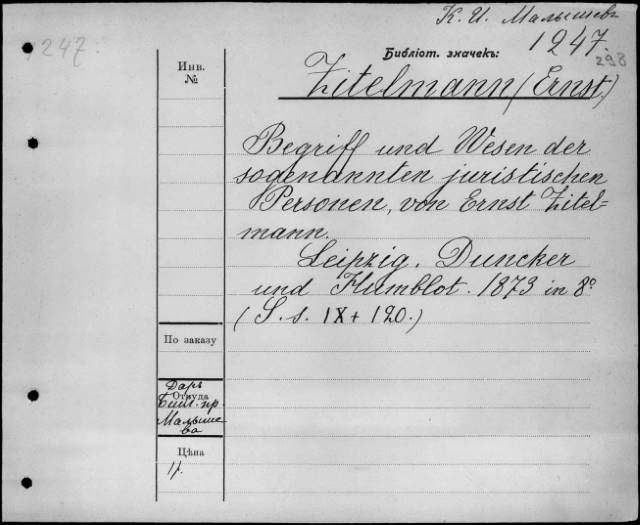 К. И. Малышевъ
1247.
1247.
298
Библіот. значекъ:
Инв.
№
Zitelmann (Ernst)
Begriff und Wesen der
sogenannten juristischen
Personen, von Ernst Zitel-
mann.
Leipzig. Duncker
und Humblot. 1873 in 8º
(S. s. IX + 120.)
По заказу
Откуда
Даръ
Библ. пр.
Малыше
ва
Цѣна